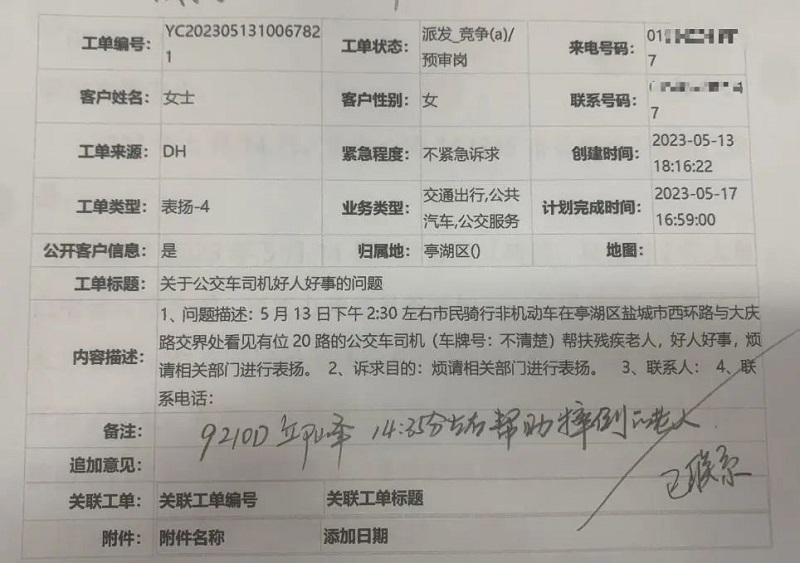 工单编号： YC202305131006782 工单状态： 派发_竞争(a)/ 来电号码： 01
1 预审岗 7
客户姓名： 女士 客户性别： 女 联系号码：
7
工单来源： DH 紧急程度： 不紧急诉求 创建时间： 2023-05-13
18:16:22
工单类型： 表扬-4 业务类型： 交通出行,公共 计划完成时间： 2023-05-17
汽车,公交服务 16:59:00
公开客户信息： 是 归属地： 亭湖区() 地图：
工单标题： 关于公交车司机好人好事的问题
内容描述： 1、问题描述：5 月 13 日下午 2:30 左右市民骑行非机动车在亭湖区盐城市西环路与大庆
路交界处看见有位 20 路的公交车司机（车牌号：不清楚）帮扶残疾老人，好人好事，烦
请相关部门进行表扬。 2、诉求目的：烦请相关部门进行表扬。 3、联系人： 4、联
系电话：
备注： 9210D 14:35分左右帮助摔倒的老人.
追加意见： 已联系
关联工单： 关联工单编号 关联工单标题
附件： 附件名称 添加日期